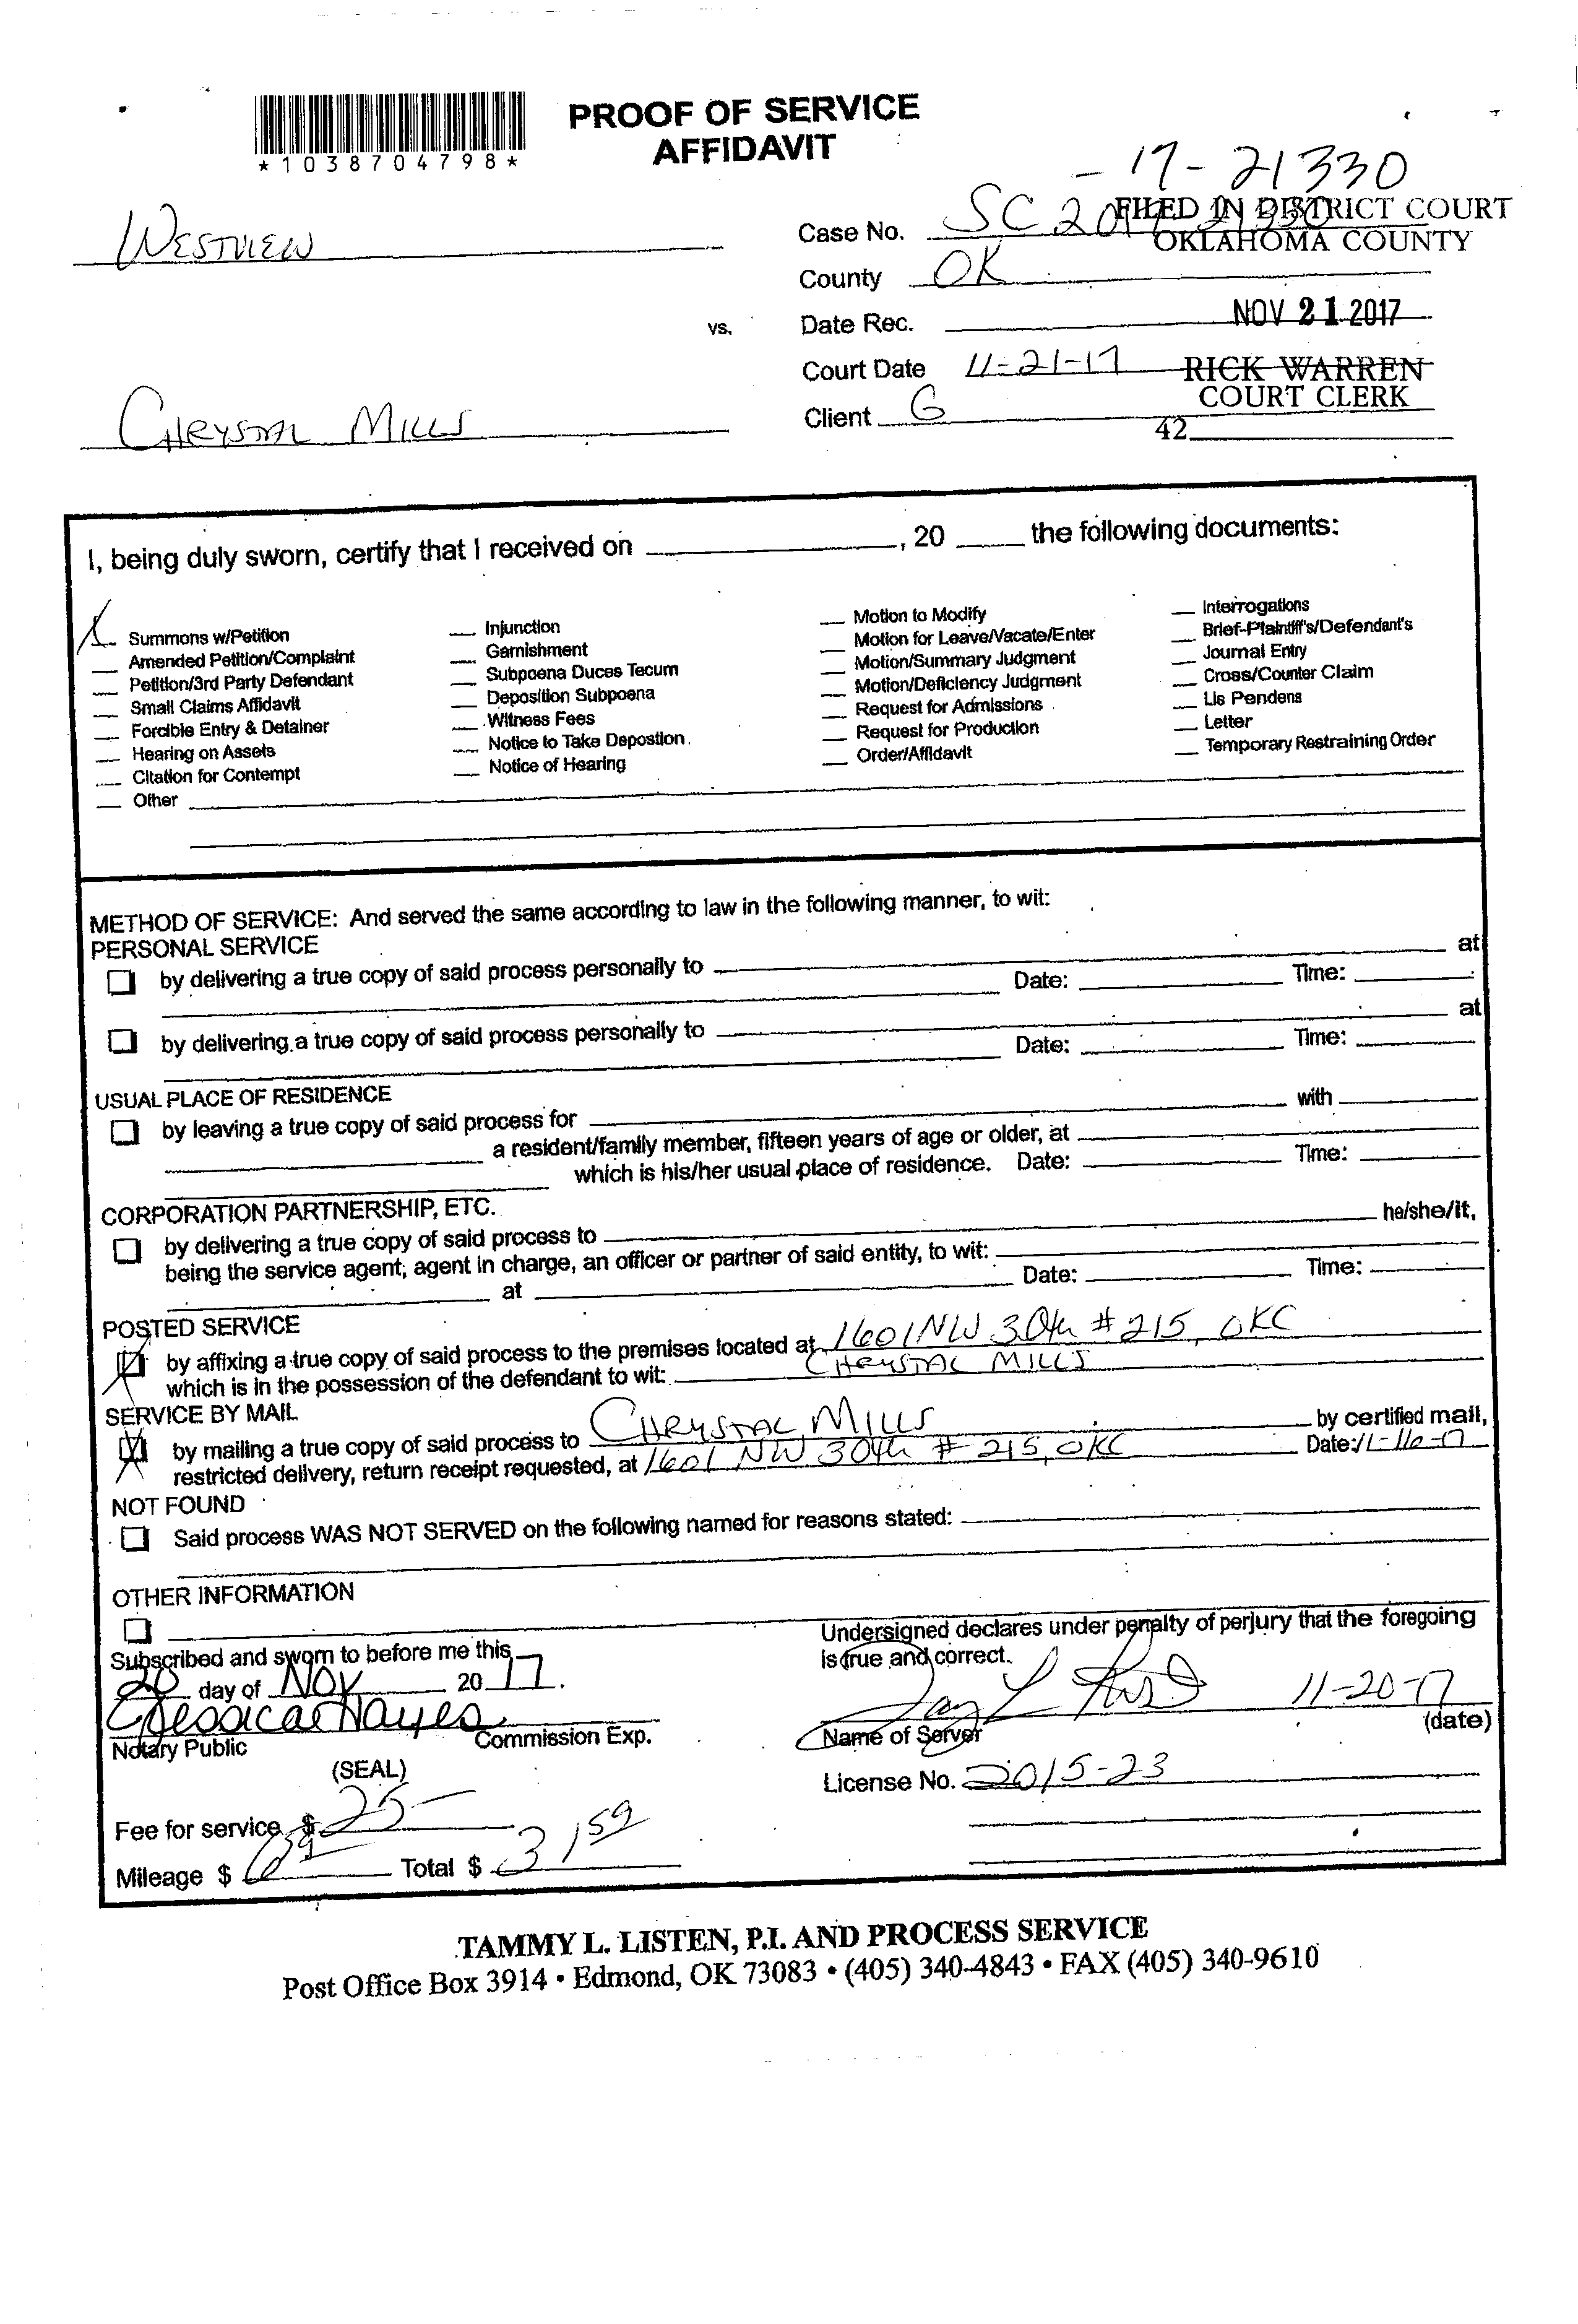 PROOF OF SERVICE
AFFIDAVIT
*1038704798*
- 17-21330
WESTVIEW
Case No. SC 2017-21330
FILED IN DISTRICT COURT
OKLAHOMA COUNTY
County OK
vs.
Date Rec.
NOV 21 2017
Court Date 11-21-17
RICK WARREN
COURT CLERK
CHRYSTAL MILLS
Client G
42
I, being duly sworn, certify that I received on , 20 the following documents:
X Summons w/Petition
Amended Petition/Complaint
Petition/3rd Party Defendant
Small Claims Affidavit
Forcible Entry & Detainer
Hearing on Assets
Citation for Contempt
Other
Injunction
Garnishment
Subpoena Duces Tecum
Deposition Subpoena
Witness Fees
Notice to Take Depostion
Notice of Hearing
Motion to Modify
Motion for Leave/Vacate/Enter
Motion/Summary Judgment
Motion/Deficiency Judgment
Request for Admissions
Request for Production
Order/Affidavit
Interrogations
Brief-Plaintiff's/Defendant's
Journal Entry
Cross/Counter Claim
Lis Pendens
Letter
Temporary Restraining Order
METHOD OF SERVICE: And served the same according to law in the following manner, to wit:
PERSONAL SERVICE
by delivering a true copy of said process personally to at
Date: Time:
by delivering a true copy of said process personally to at
Date: Time:
USUAL PLACE OF RESIDENCE
by leaving a true copy of said process for with
a resident/family member, fifteen years of age or older, at
which is his/her usual place of residence. Date: Time:
CORPORATION PARTNERSHIP, ETC.
by delivering a true copy of said process to he/she/it,
being the service agent, agent in charge, an officer or partner of said entity, to wit:
at Date: Time:
POSTED SERVICE
by affixing a true copy of said process to the premises located at 1601 NW 30th # 215, OKC
which is in the possession of the defendant to wit: CHRYSTAL MILLS
SERVICE BY MAIL
by mailing a true copy of said process to CHRYSTAL MILLS by certified mail,
restricted delivery, return receipt requested, at 1601 NW 30th # 215, OKC Date: 11-16-17
NOT FOUND
Said process WAS NOT SERVED on the following named for reasons stated:
OTHER INFORMATION
Subscribed and sworn to before me this
20 day of NOV 20 17.
Jessica Hayes
Notary Public Commission Exp.
(SEAL)
Fee for service $ 25-
Mileage $ 6 59 Total $ 31 59
Undersigned declares under penalty of perjury that the foregoing
is true and correct.
11-20-17
Name of Server (date)
License No. 2015-23
TAMMY L. LISTEN, P.I. AND PROCESS SERVICE
Post Office Box 3914 • Edmond, OK 73083 • (405) 340-4843 • FAX (405) 340-9610